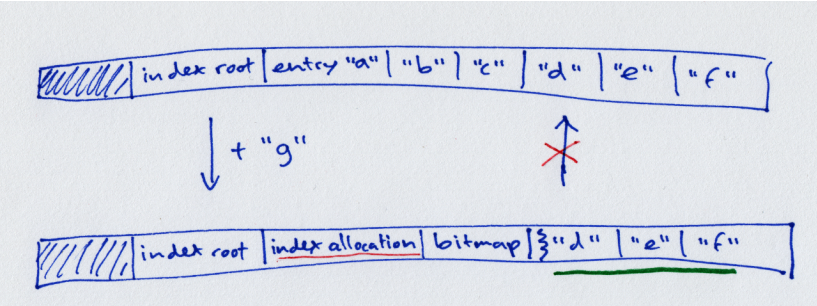 index root | entry "a" | "b" | "c" | "d" | "e" | "f"
+ "g"
index root | index allocation | bitmap | "d" | "e" | "f"